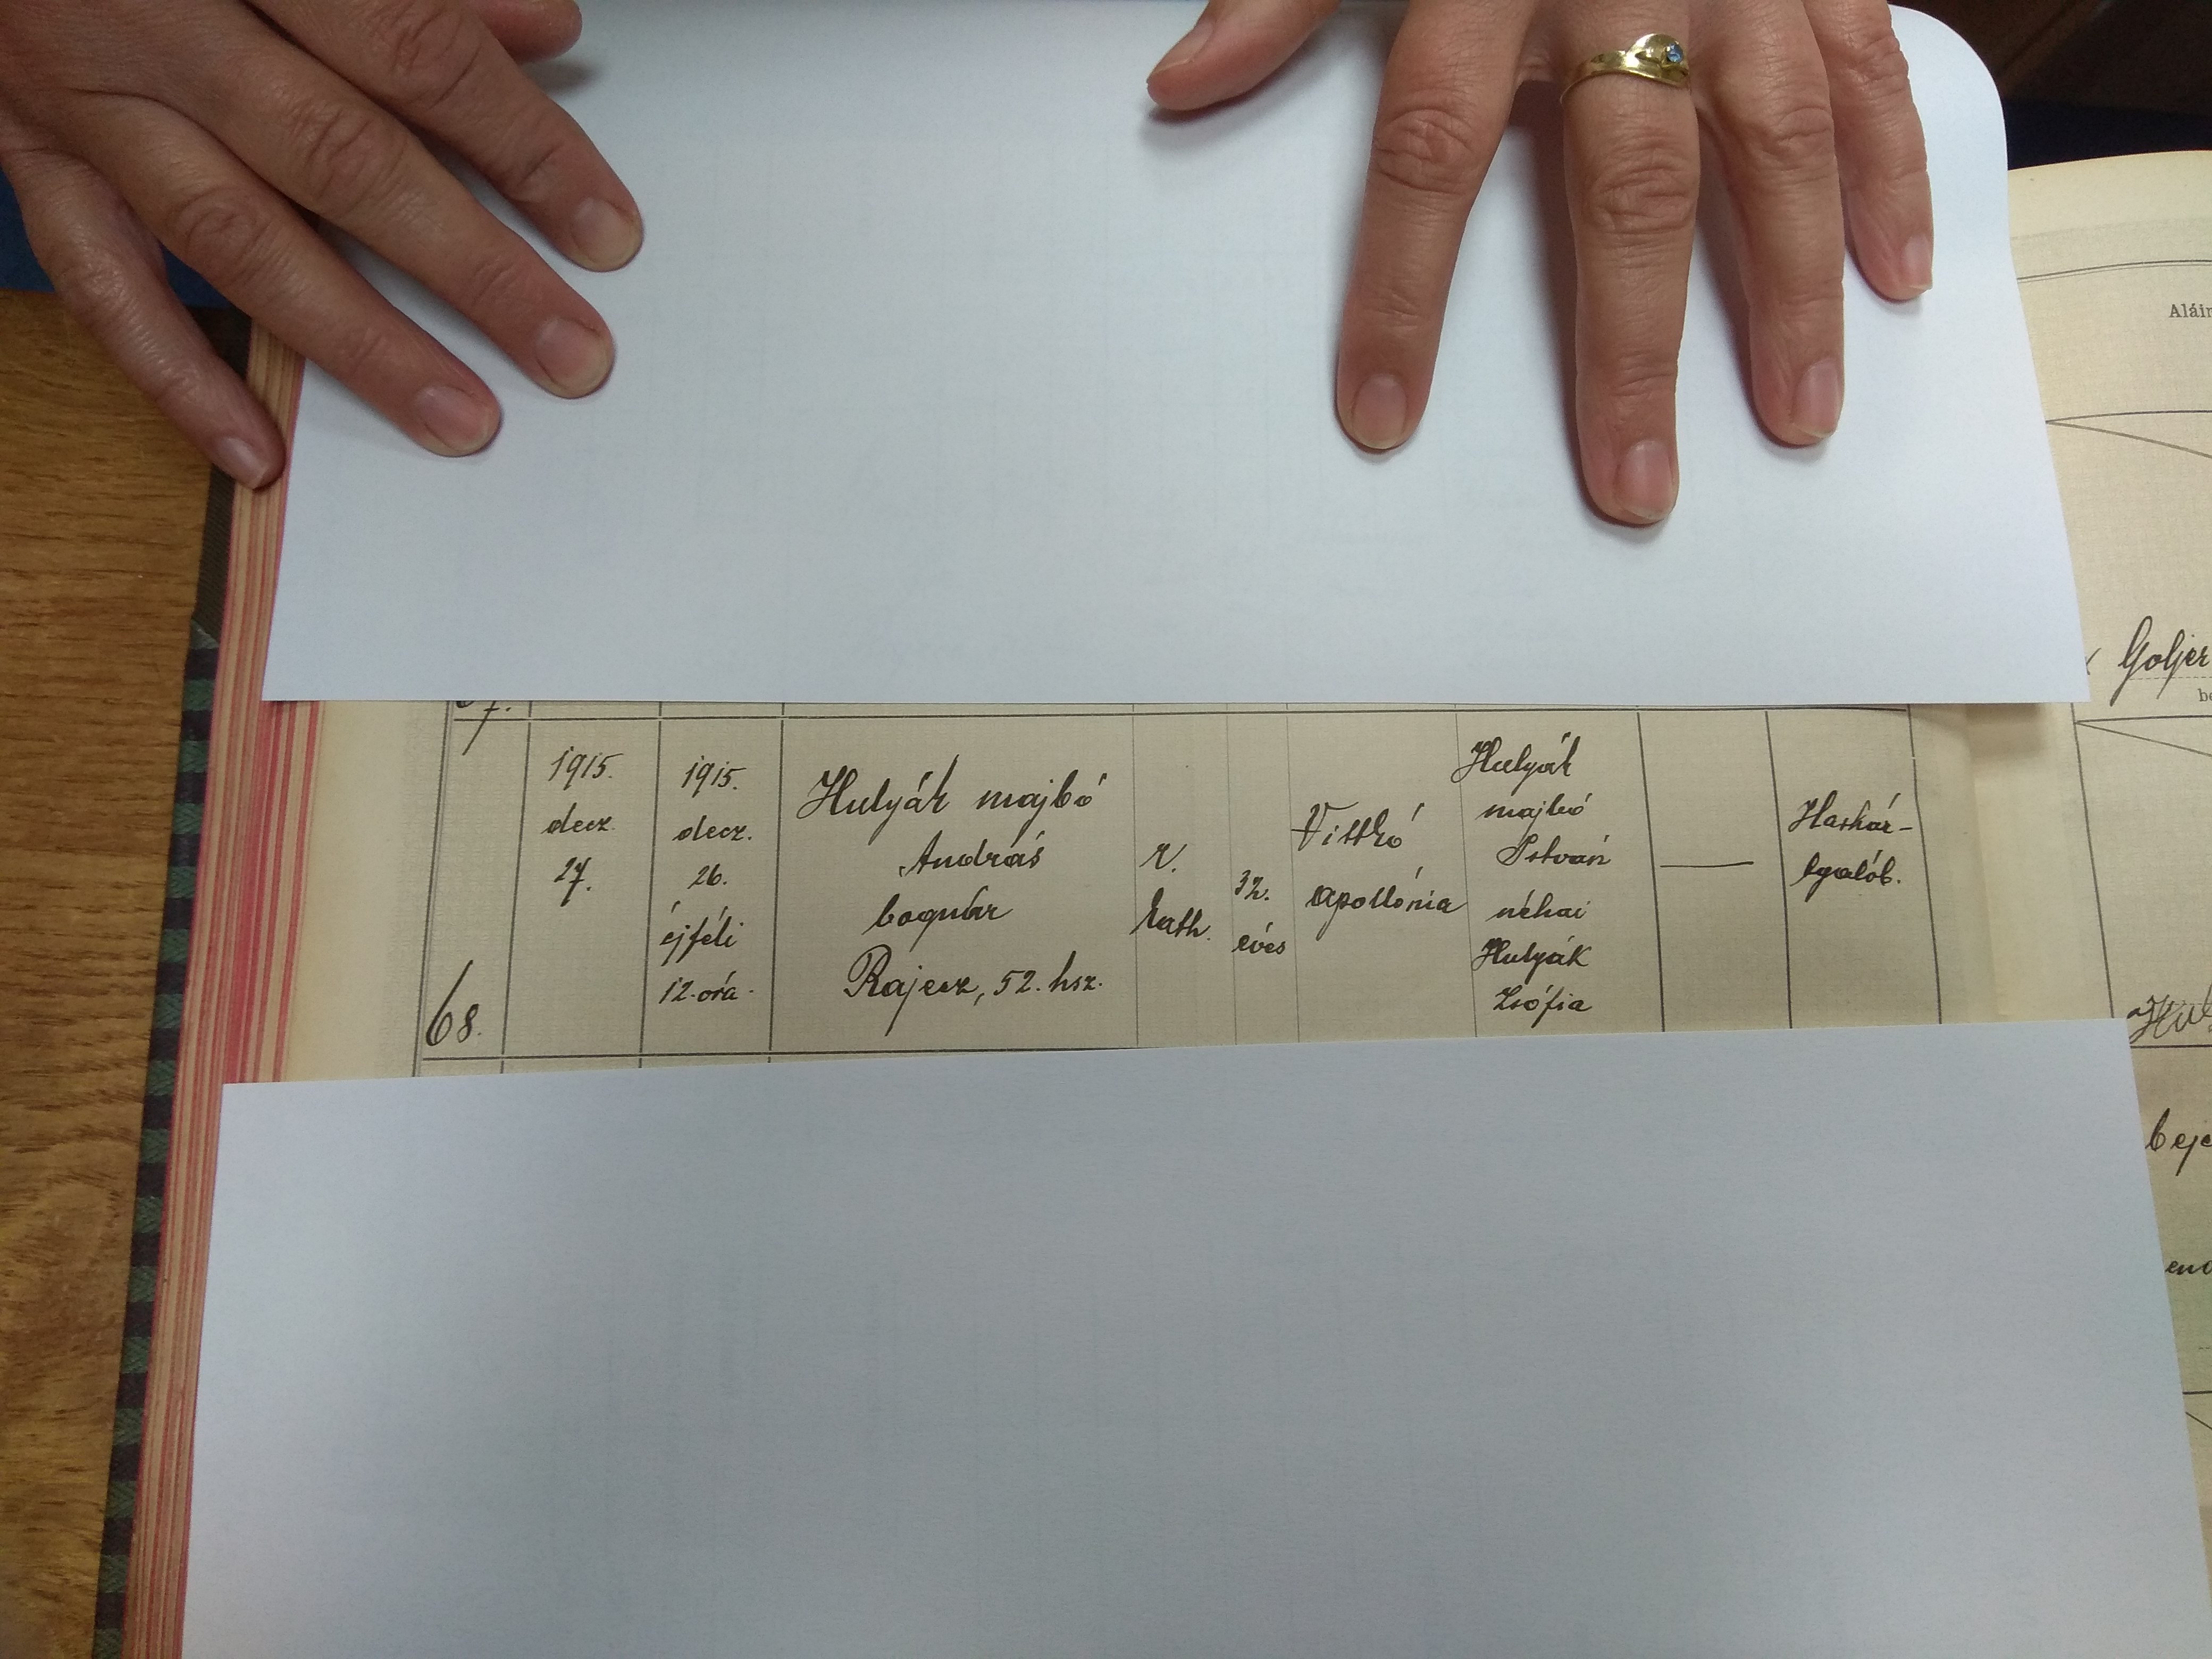 7.
68.
1915.
decz.
27.
1915.
decz.
26.
éjféli
12. óra.
Hulyák majbó
András
bognár
Rajecz, 52. hsz.
r.
kath.
32.
éves
Vittkó
Apollónia
Hulyák
majbó
István
néhai
Hulyák
Zsófia
—
Hashár-
tyalób.
Aláír
Goljer
be
Hul
beje